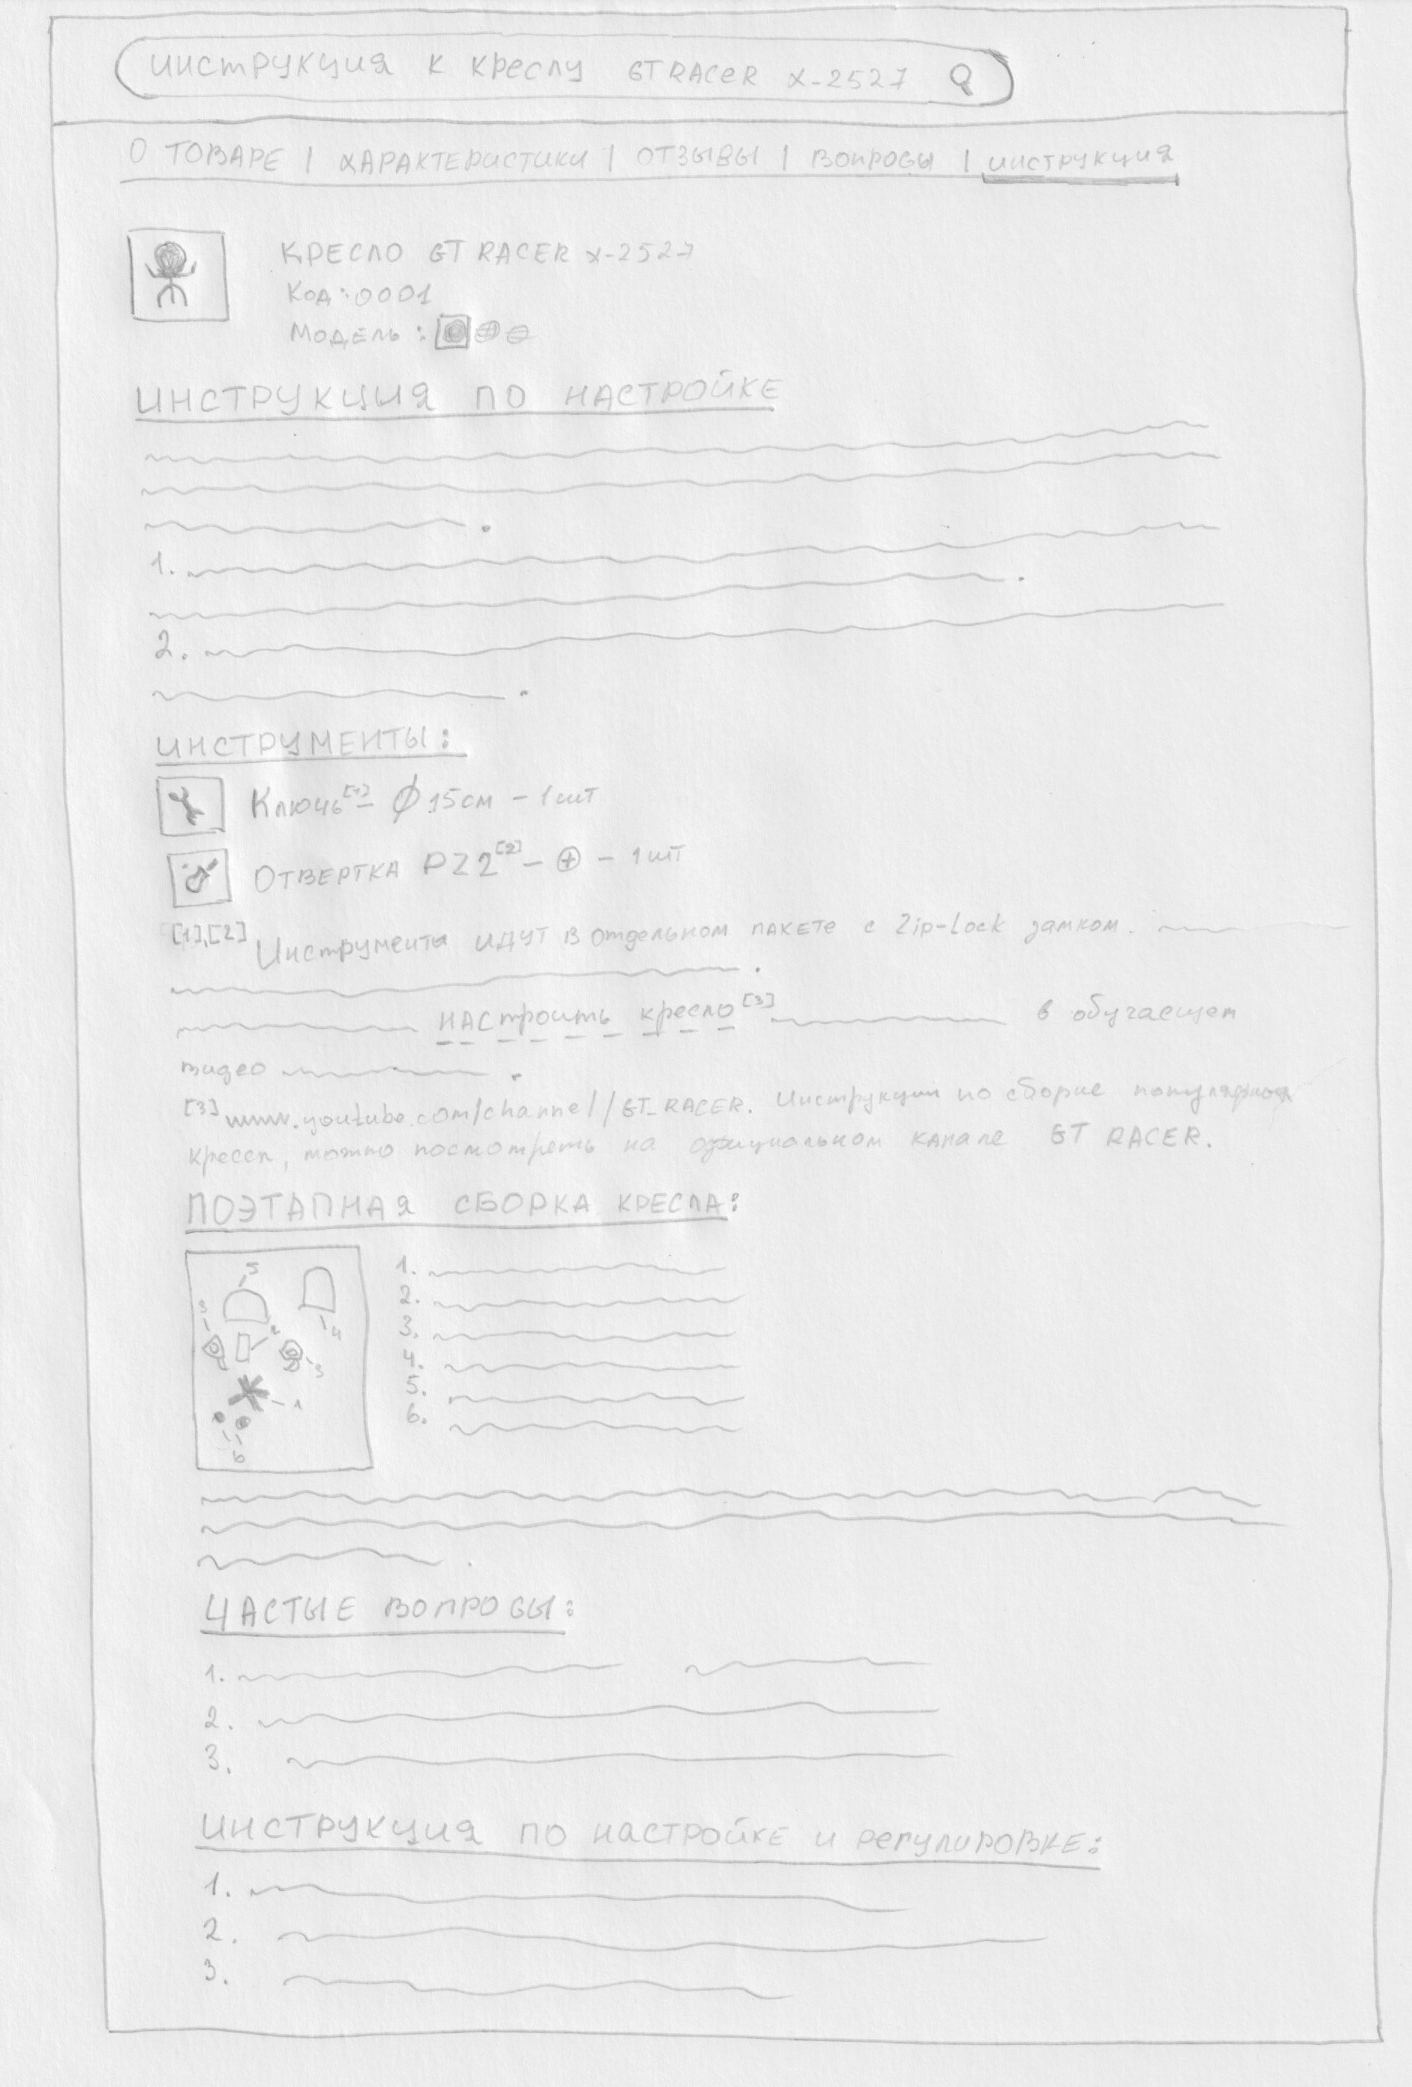 инструкция к креслу GT RACER X-2527
О ТОВАРЕ | ХАРАКТЕРИСТИКИ | ОТЗЫВЫ | ВОПРОСЫ | ИНСТРУКЦИЯ
КРЕСЛО GT RACER X-2527
Код: 0001
Модель:
ИНСТРУКЦИЯ ПО НАСТРОЙКЕ
1.
2.
ИНСТРУМЕНТЫ:
Ключь[1] – Ø 15см – 1шт
ОТВЕРТКА PZ2[2] – ⊕ – 1шт
[1],[2] Инструменты идут в отдельном пакете с Zip-Lock замком.
настроить кресло[3] в обучаещем
видео
[3] www.youtube.com/channel//GT_RACER. Инструкции по сборке популярных
кресел, можно посмотреть на официальном канале GT RACER.
ПОЭТАПНАЯ СБОРКА КРЕСЛА:
5
3
2
4
3
1
6
1.
2.
3.
4.
5.
6.
ЧАСТЫЕ ВОПРОСЫ:
1.
2.
3.
ИНСТРУКЦИЯ ПО НАСТРОЙКЕ И РЕГУЛИРОВКЕ:
1.
2.
3.